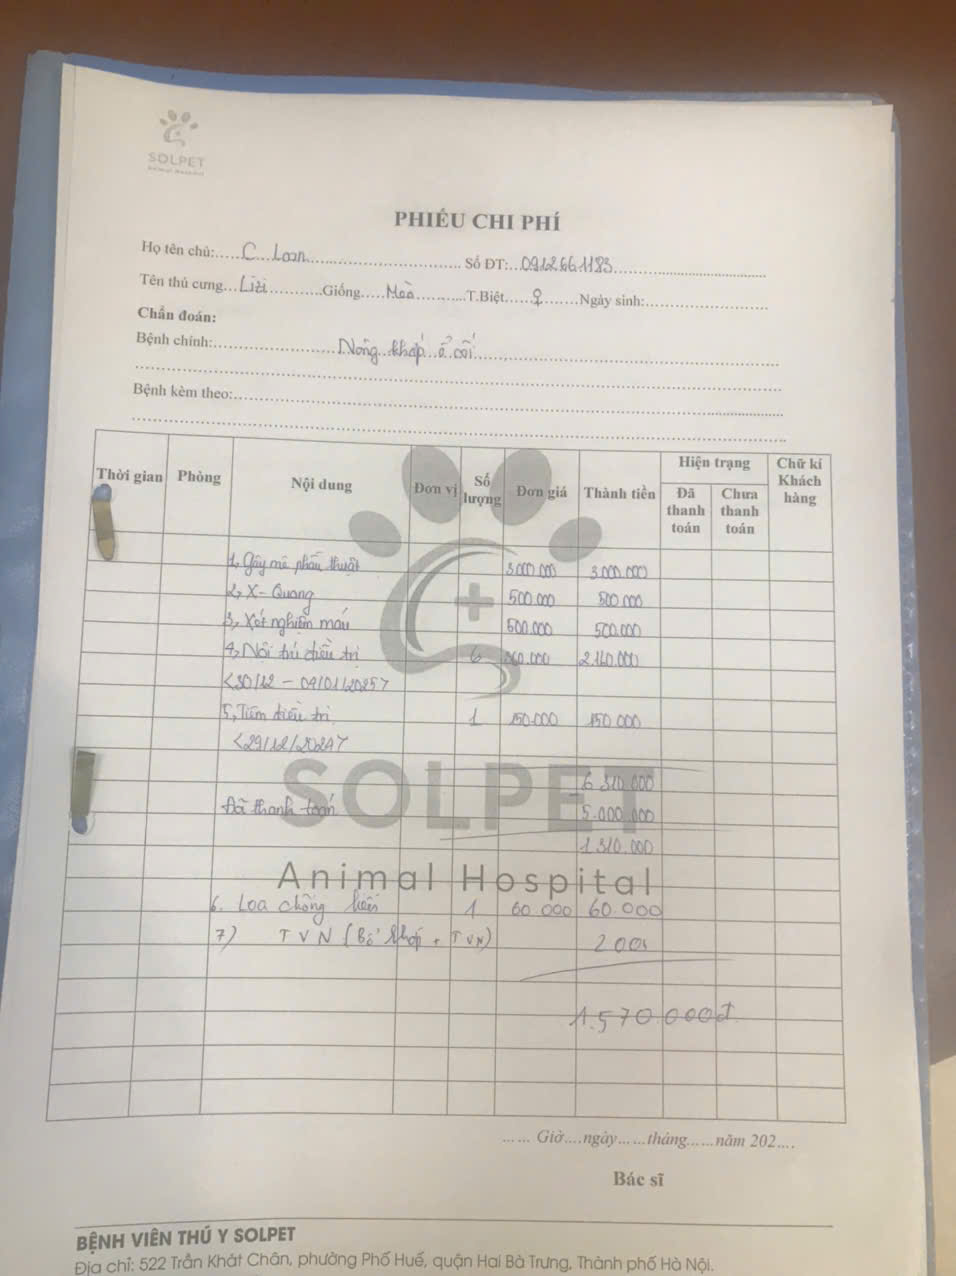 SOLPET
Animal Hospital
PHIẾU CHI PHÍ
Họ tên chủ:.....C Loan..... Số ĐT:..0912661183.....
Tên thú cưng...Lizi.....Giống....Mèo.....T.Biệt.....♀.....Ngày sinh:.....
Chẩn đoán:
Bệnh chính:.....Nông khớp ổ cối.....
Bệnh kèm theo:.....
Thời gian Phòng Nội dung Đơn vị Số lượng Đơn giá Thành tiền Hiện trạng Chữ kí Khách hàng
Đã thanh toán Chưa thanh toán
1, Gây mê phẫu thuật 3.000.000 3.000.000
2, X-Quang 500.000 500.000
3, Xét nghiệm máu 500.000 500.000
4, Nội trú điều trị 6 360.000 2.160.000
<30/12 - 04/01/2025>
5, Tiêm điều trị 1 150.000 150.000
<29/12/2024>
SOLPET
6 310.000
Đã thanh toán 5.000.000
1.310.000
Animal Hospital
6. Loa chống liếm 1 60.000 60.000
7) TVN (Bổ khớp + TVN) 200
1.570.000đ
...... Giờ....ngày......tháng......năm 202....
Bác sĩ
BỆNH VIÊN THÚ Y SOLPET
Địa chỉ: 522 Trần Khát Chân, phường Phố Huế, quận Hai Bà Trưng, Thành phố Hà Nội.